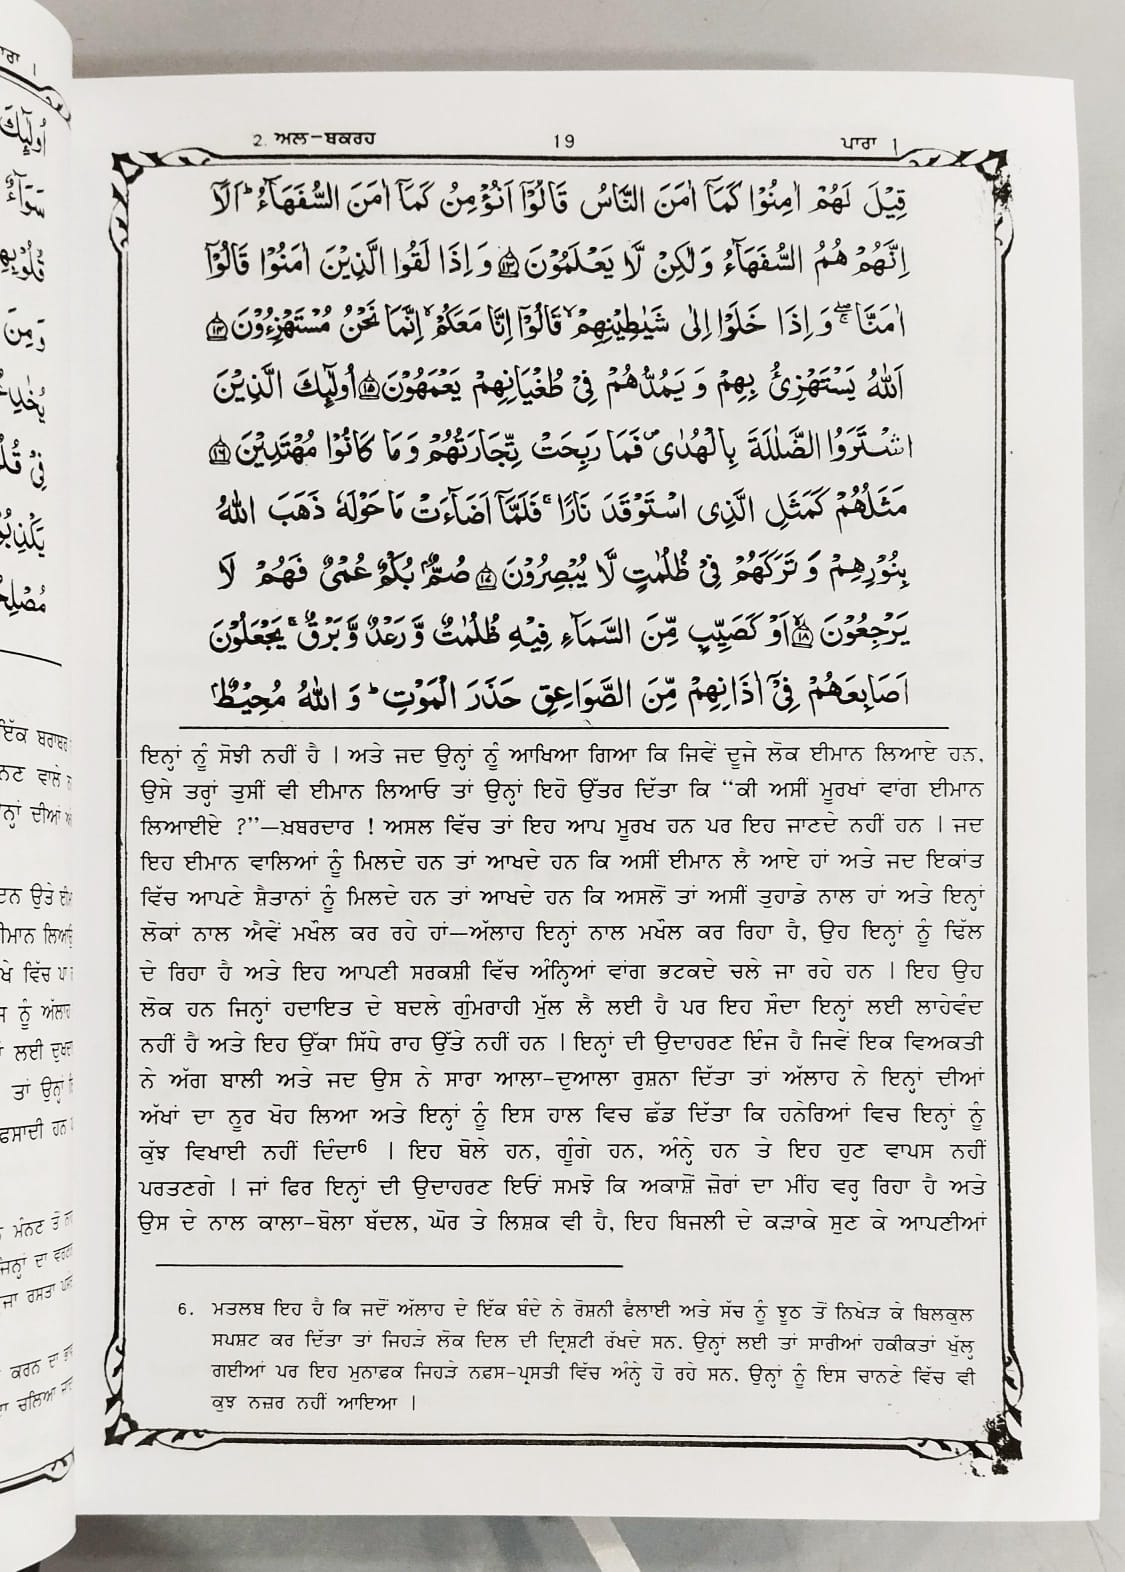 2. ਅਲ-ਬਕਰਹ 19 ਪਾਰਾ 1
قِيْلَ لَهُمْ اٰمِنُوْا كَمَآ اٰمَنَ النَّاسُ قَالُوْٓا اَنُؤْمِنُ كَمَآ اٰمَنَ السُّفَهَآءُ ؕ اَلَآ
اِنَّهُمْ هُمُ السُّفَهَآءُ وَلٰكِنْ لَّا يَعْلَمُوْنَ ۝۱۳ وَاِذَا لَقُوا الَّذِيْنَ اٰمَنُوْا قَالُوْٓا
اٰمَنَّا ۖۚ وَاِذَا خَلَوْا اِلٰى شَيٰطِيْنِهِمْ ۙ قَالُوْٓا اِنَّا مَعَكُمْ ۙ اِنَّمَا نَحْنُ مُسْتَهْزِءُوْنَ ۝۱۴
اَللّٰهُ يَسْتَهْزِئُ بِهِمْ وَ يَمُدُّهُمْ فِيْ طُغْيَانِهِمْ يَعْمَهُوْنَ ۝۱۵ اُولٰٓئِكَ الَّذِيْنَ
اشْتَرَوُا الضَّلٰلَةَ بِالْهُدٰى ۪ فَمَا رَبِحَتْ تِّجَارَتُهُمْ وَمَا كَانُوْا مُهْتَدِيْنَ ۝۱۶
مَثَلُهُمْ كَمَثَلِ الَّذِى اسْتَوْقَدَ نَارًا ۚ فَلَمَّآ اَضَآءَتْ مَا حَوْلَهٗ ذَهَبَ اللّٰهُ
بِنُوْرِهِمْ وَ تَرَكَهُمْ فِيْ ظُلُمٰتٍ لَّا يُبْصِرُوْنَ ۝۱۷ صُمٌّۢ بُكْمٌ عُمْيٌ فَهُمْ لَا
يَرْجِعُوْنَ ۝۱۸ اَوْ كَصَيِّبٍ مِّنَ السَّمَآءِ فِيْهِ ظُلُمٰتٌ وَّ رَعْدٌ وَّ بَرْقٌ ۚ يَجْعَلُوْنَ
اَصَابِعَهُمْ فِيْٓ اٰذَانِهِمْ مِّنَ الصَّوَاعِقِ حَذَرَ الْمَوْتِ ؕ وَ اللّٰهُ مُحِيْطٌۢ
ਇਨ੍ਹਾਂ ਨੂੰ ਸੋਝੀ ਨਹੀਂ ਹੈ । ਅਤੇ ਜਦ ਉਨ੍ਹਾਂ ਨੂੰ ਆਖਿਆ ਗਿਆ ਕਿ ਜਿਵੇਂ ਦੂਜੇ ਲੋਕ ਈਮਾਨ ਲਿਆਏ ਹਨ,
ਉਸੇ ਤਰ੍ਹਾਂ ਤੁਸੀਂ ਵੀ ਈਮਾਨ ਲਿਆਓ ਤਾਂ ਉਨ੍ਹਾਂ ਇਹੋ ਉੱਤਰ ਦਿੱਤਾ ਕਿ “ਕੀ ਅਸੀਂ ਮੂਰਖਾਂ ਵਾਂਗ ਈਮਾਨ
ਲਿਆਈਏ ?”—ਖ਼ਬਰਦਾਰ ! ਅਸਲ ਵਿੱਚ ਤਾਂ ਇਹ ਆਪ ਮੂਰਖ ਹਨ ਪਰ ਇਹ ਜਾਣਦੇ ਨਹੀਂ ਹਨ । ਜਦ
ਇਹ ਈਮਾਨ ਵਾਲਿਆਂ ਨੂੰ ਮਿਲਦੇ ਹਨ ਤਾਂ ਆਖਦੇ ਹਨ ਕਿ ਅਸੀਂ ਈਮਾਨ ਲੈ ਆਏ ਹਾਂ ਅਤੇ ਜਦ ਇਕਾਂਤ
ਵਿੱਚ ਆਪਣੇ ਸ਼ੈਤਾਨਾਂ ਨੂੰ ਮਿਲਦੇ ਹਨ ਤਾਂ ਆਖਦੇ ਹਨ ਕਿ ਅਸਲੋਂ ਤਾਂ ਅਸੀਂ ਤੁਹਾਡੇ ਨਾਲ ਹਾਂ ਅਤੇ ਇਨ੍ਹਾਂ
ਲੋਕਾਂ ਨਾਲ ਐਵੇਂ ਮਖੌਲ ਕਰ ਰਹੇ ਹਾਂ—ਅੱਲਾਹ ਇਨ੍ਹਾਂ ਨਾਲ ਮਖੌਲ ਕਰ ਰਿਹਾ ਹੈ, ਉਹ ਇਨ੍ਹਾਂ ਨੂੰ ਢਿੱਲ
ਦੇ ਰਿਹਾ ਹੈ ਅਤੇ ਇਹ ਆਪਣੀ ਸਰਕਸ਼ੀ ਵਿੱਚ ਅੰਨ੍ਹਿਆਂ ਵਾਂਗ ਭਟਕਦੇ ਚਲੇ ਜਾ ਰਹੇ ਹਨ । ਇਹ ਉਹ
ਲੋਕ ਹਨ ਜਿਨ੍ਹਾਂ ਹਦਾਇਤ ਦੇ ਬਦਲੇ ਗੁੰਮਰਾਹੀ ਮੁੱਲ ਲੈ ਲਈ ਹੈ ਪਰ ਇਹ ਸੌਦਾ ਇਨ੍ਹਾਂ ਲਈ ਲਾਹੇਵੰਦ
ਨਹੀਂ ਹੈ ਅਤੇ ਇਹ ਉੱਕਾ ਸਿੱਧੇ ਰਾਹ ਉੱਤੇ ਨਹੀਂ ਹਨ । ਇਨ੍ਹਾਂ ਦੀ ਉਦਾਹਰਣ ਇੰਜ ਹੈ ਜਿਵੇਂ ਇਕ ਵਿਅਕਤੀ
ਨੇ ਅੱਗ ਬਾਲੀ ਅਤੇ ਜਦ ਉਸ ਨੇ ਸਾਰਾ ਆਲਾ-ਦੁਆਲਾ ਰੁਸ਼ਨਾ ਦਿੱਤਾ ਤਾਂ ਅੱਲਾਹ ਨੇ ਇਨ੍ਹਾਂ ਦੀਆਂ
ਅੱਖਾਂ ਦਾ ਨੂਰ ਖੋਹ ਲਿਆ ਅਤੇ ਇਨ੍ਹਾਂ ਨੂੰ ਇਸ ਹਾਲ ਵਿਚ ਛੱਡ ਦਿੱਤਾ ਕਿ ਹਨੇਰਿਆਂ ਵਿਚ ਇਨ੍ਹਾਂ ਨੂੰ
ਕੁੱਝ ਵਿਖਾਈ ਨਹੀਂ ਦਿੰਦਾ⁶ । ਇਹ ਬੋਲੇ ਹਨ, ਗੂੰਗੇ ਹਨ, ਅੰਨ੍ਹੇ ਹਨ ਤੇ ਇਹ ਹੁਣ ਵਾਪਸ ਨਹੀਂ
ਪਰਤਣਗੇ । ਜਾਂ ਫਿਰ ਇਨ੍ਹਾਂ ਦੀ ਉਦਾਹਰਣ ਇਓਂ ਸਮਝੋ ਕਿ ਅਕਾਸ਼ੋਂ ਜ਼ੋਰਾਂ ਦਾ ਮੀਂਹ ਵਰ੍ਹ ਰਿਹਾ ਹੈ ਅਤੇ
ਉਸ ਦੇ ਨਾਲ ਕਾਲਾ-ਬੋਲਾ ਬੱਦਲ, ਘੋਰ ਤੇ ਲਿਸ਼ਕ ਵੀ ਹੈ, ਇਹ ਬਿਜਲੀ ਦੇ ਕੜਾਕੇ ਸੁਣ ਕੇ ਆਪਣੀਆਂ
6. ਮਤਲਬ ਇਹ ਹੈ ਕਿ ਜਦੋਂ ਅੱਲਾਹ ਦੇ ਇੱਕ ਬੰਦੇ ਨੇ ਰੋਸ਼ਨੀ ਫੈਲਾਈ ਅਤੇ ਸੱਚ ਨੂੰ ਝੂਠ ਤੋਂ ਨਿਖੇੜ ਕੇ ਬਿਲਕੁਲ
ਸਪਸ਼ਟ ਕਰ ਦਿੱਤਾ ਤਾਂ ਜਿਹੜੇ ਲੋਕ ਦਿਲ ਦੀ ਦ੍ਰਿਸ਼ਟੀ ਰੱਖਦੇ ਸਨ, ਉਨ੍ਹਾਂ ਲਈ ਤਾਂ ਸਾਰੀਆਂ ਹਕੀਕਤਾਂ ਖੁੱਲ੍ਹ
ਗਈਆਂ ਪਰ ਇਹ ਮੁਨਾਫ਼ਕ ਜਿਹੜੇ ਨਫ਼ਸ-ਪ੍ਰਸਤੀ ਵਿੱਚ ਅੰਨ੍ਹੇ ਹੋ ਰਹੇ ਸਨ, ਉਨ੍ਹਾਂ ਨੂੰ ਇਸ ਚਾਨਣੇ ਵਿੱਚ ਵੀ
ਕੁਝ ਨਜ਼ਰ ਨਹੀਂ ਆਇਆ ।